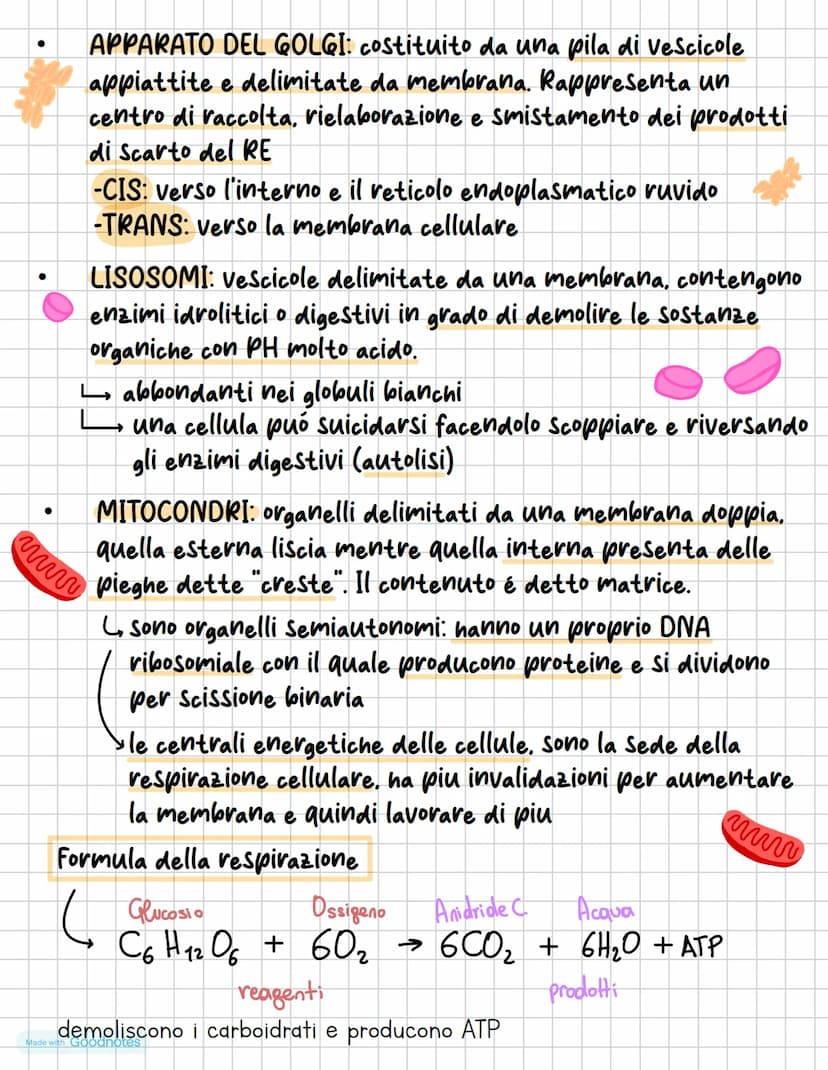 • APPARATO DEL GOLGI: costituito da una pila di vescicole
appiattite e delimitate da membrana. Rappresenta un
centro di raccolta, rielaborazione e smistamento dei prodotti
di scarto del RE
-CIS: verso l'interno e il reticolo endoplasmatico ruvido
-TRANS: verso la membrana cellulare
• LISOSOMI: vescicole delimitate da una membrana, contengono
enzimi idrolitici o digestivi in grado di demolire le sostanze
organiche con PH molto acido.
↳ abbondanti nei globuli bianchi
↳ una cellula puó suicidarsi facendolo scoppiare e riversando
gli enzimi digestivi (autolisi)
• MITOCONDRI: organelli delimitati da una membrana doppia,
quella esterna liscia mentre quella interna presenta delle
pieghe dette "creste". Il contenuto é detto matrice.
↳ sono organelli semiautonomi: hanno un proprio DNA
ribosomiale con il quale producono proteine e si dividono
per scissione binaria
le centrali energetiche delle cellule, sono la sede della
respirazione cellulare, ha piu invalidazioni per aumentare
la membrana e quindi lavorare di piu
Formula della respirazione
Glucosio Ossigeno Anidride C. Acqua
C₆H₁₂O₆ + 6O₂ → 6CO₂ + 6H₂O + ATP
reagenti prodotti
demoliscono i carboidrati e producono ATP
Made with Goodnotes